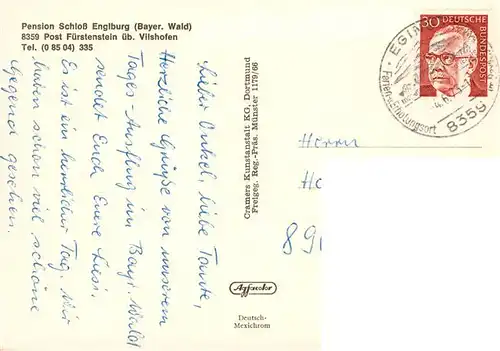 Pension Schloß Englburg (Bayer. Wald)
8359 Post Fürstenstein üb. Vilshofen
Tel. (0 85 04) 335
Lieber Onkel, liebe Tante,
Herzliche Grüße von unserem
Tages-Ausflug im Bayr. Wald
sendet Euch Euere Lisi.
Es ist ein herrlicher Tag. Wir
haben schon viel schöne
Gegend gesehen.
Cramers Kunstanstalt KG, Dortmund
Freigeg. Reg.-Präs. Münster 1179/66
Agfacolor
Deutsch-
Mexichrom
30 DEUTSCHE
BUNDESPOST
Ferien-Erholungsort
8359
Herrn